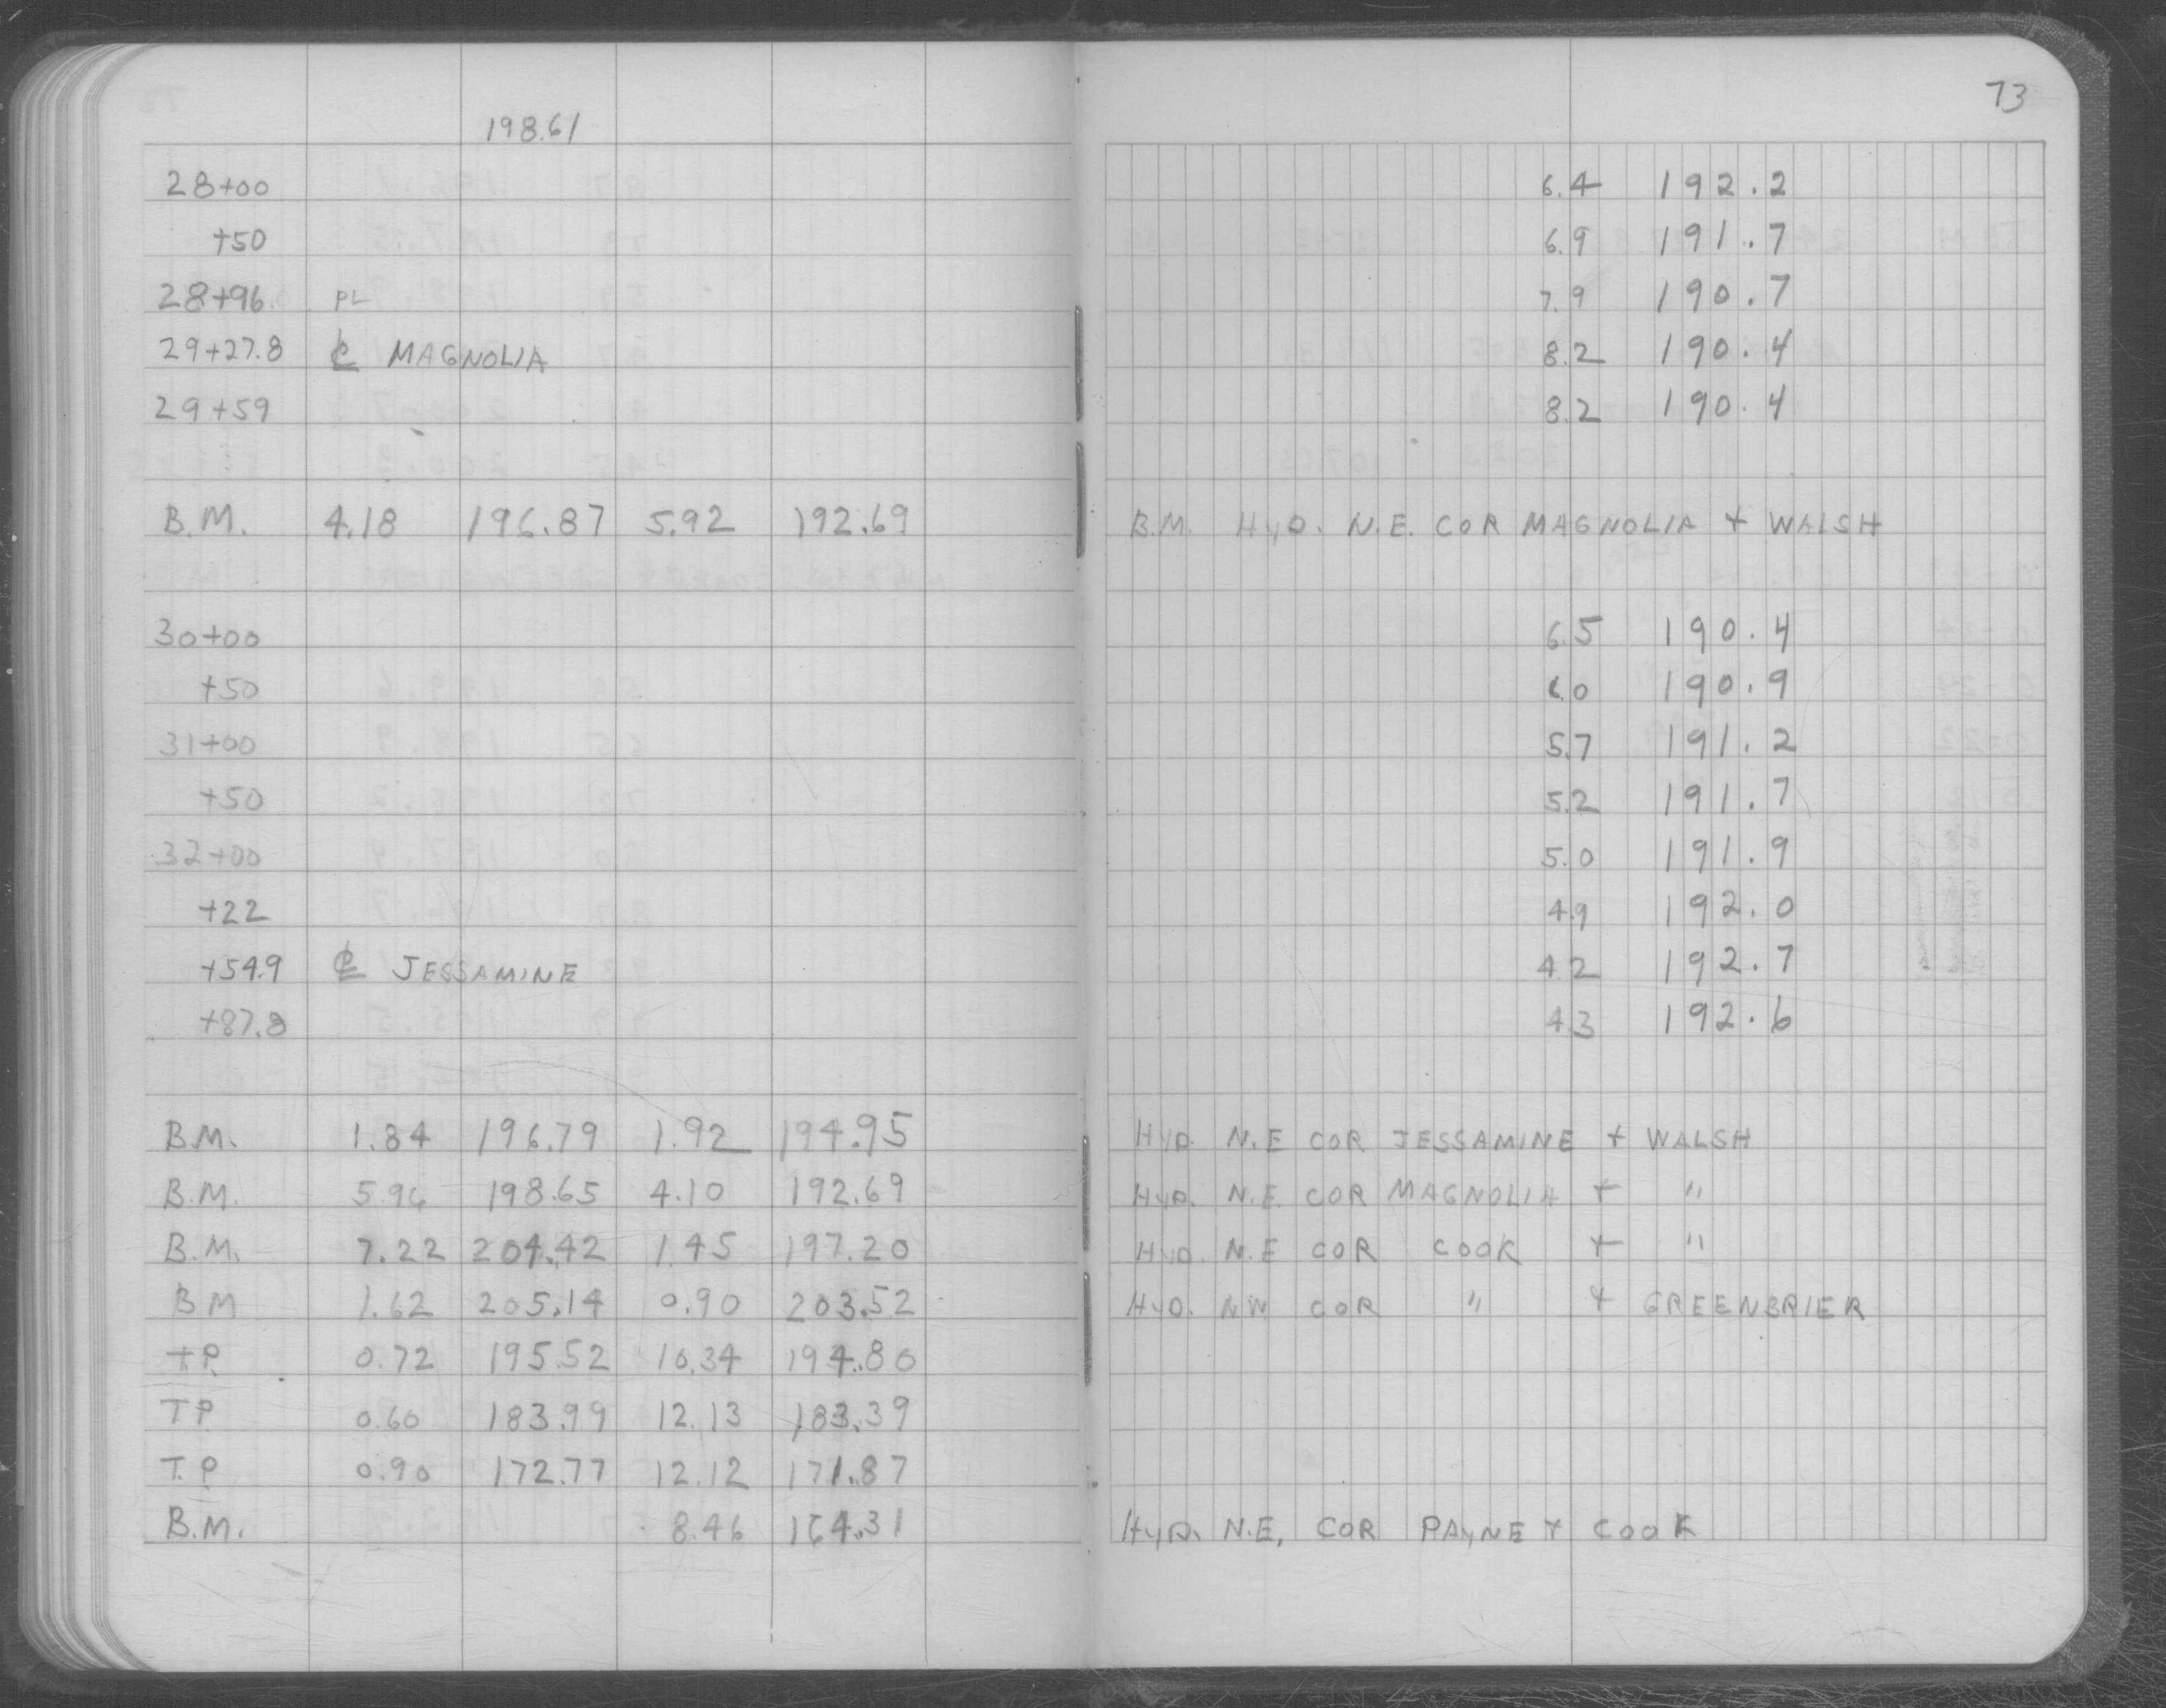 73
198.61
28+00 6.4 192.2
+50 6.9 191.7
28+96 PL 7.9 190.7
29+27.8 ℄ MAGNOLIA 8.2 190.4
29+59 8.2 190.4
B.M. 4.18 196.87 5.92 192.69 B.M. HYD. N.E. COR MAGNOLIA + WALSH
30+00 6.5 190.4
+50 6.0 190.9
31+00 5.7 191.2
+50 5.2 191.7
32+00 5.0 191.9
+22 4.9 192.0
+54.9 ℄ JESSAMINE 4.2 192.7
+87.8 4.3 192.6
B.M. 1.84 196.79 1.92 194.95 HYD. N.E COR JESSAMINE + WALSH
B.M. 5.96 198.65 4.10 192.69 HYD. N.E. COR MAGNOLIA + "
B.M. 7.22 204.42 1.45 197.20 HYD. N.E COR COOK + "
BM 1.62 205.14 0.90 203.52 HYD. NW COR " + GREENBRIER
TP 0.72 195.52 10.34 194.80
TP 0.60 183.99 12.13 183.39
T.P 0.90 172.77 12.12 171.87
B.M. 8.46 164.31 HYD. N.E. COR PAYNE + COOK